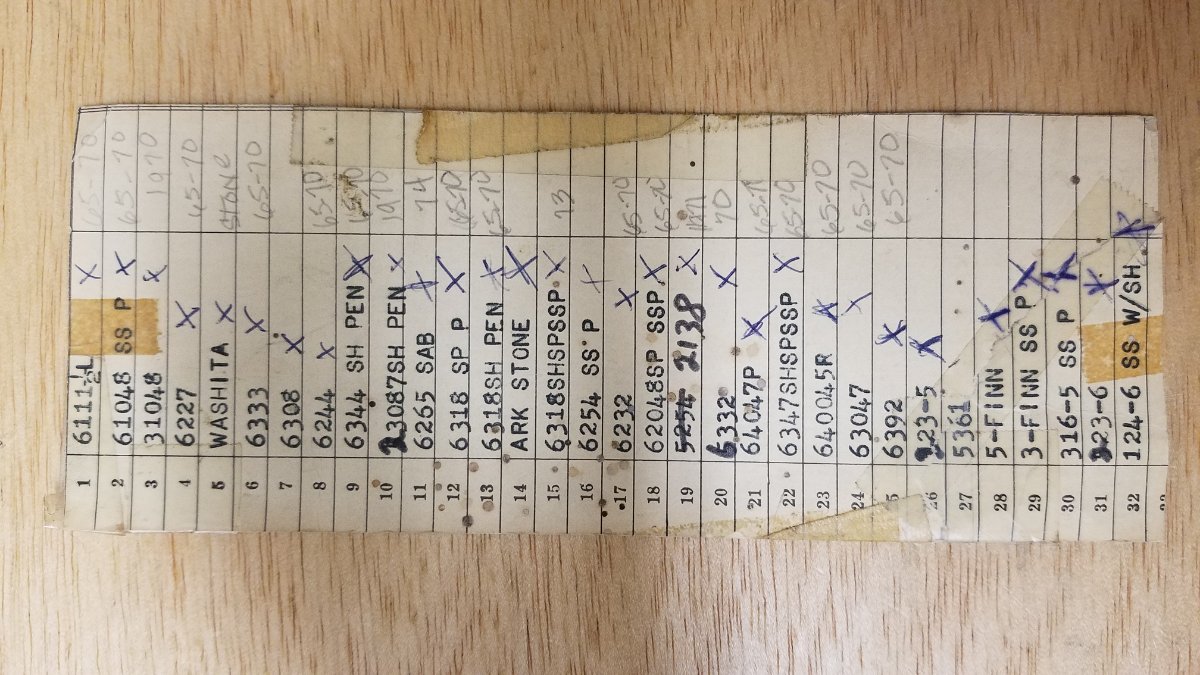 1 6111½L X 65-70
2 61048 SS P X 65-70
3 31048 X 1970
4 6227 X 65-70
5 WASHITA X STONE
6 6333 X 65-70
7 6308 X
8 6244 X 65-70
9 6344 SH PEN X 65-70
10 23087SH PEN X 1970
11 6265 SAB X 74
12 6318 SP P X 65-70
13 6318SH PEN X 65-70
14 ARK STONE X
15 6318SHSPSSP X 73
16 6254 SS P X
17 6232 X 65-70
18 62048SP SSP X 65-70
19 5254 2138 X
20 6332 X 70
21 64047P X 65-71
22 6347SHSPSSP X 65-70
23 640045R X 65-70
24 63047 X 65-70
25 6392 X 65-70
26 223-5 X
27 5361
28 5-FINN X
29 3-FINN SS P X
30 316-5 SS P X
31 223-6 X
32 124-6 SS W/SH X